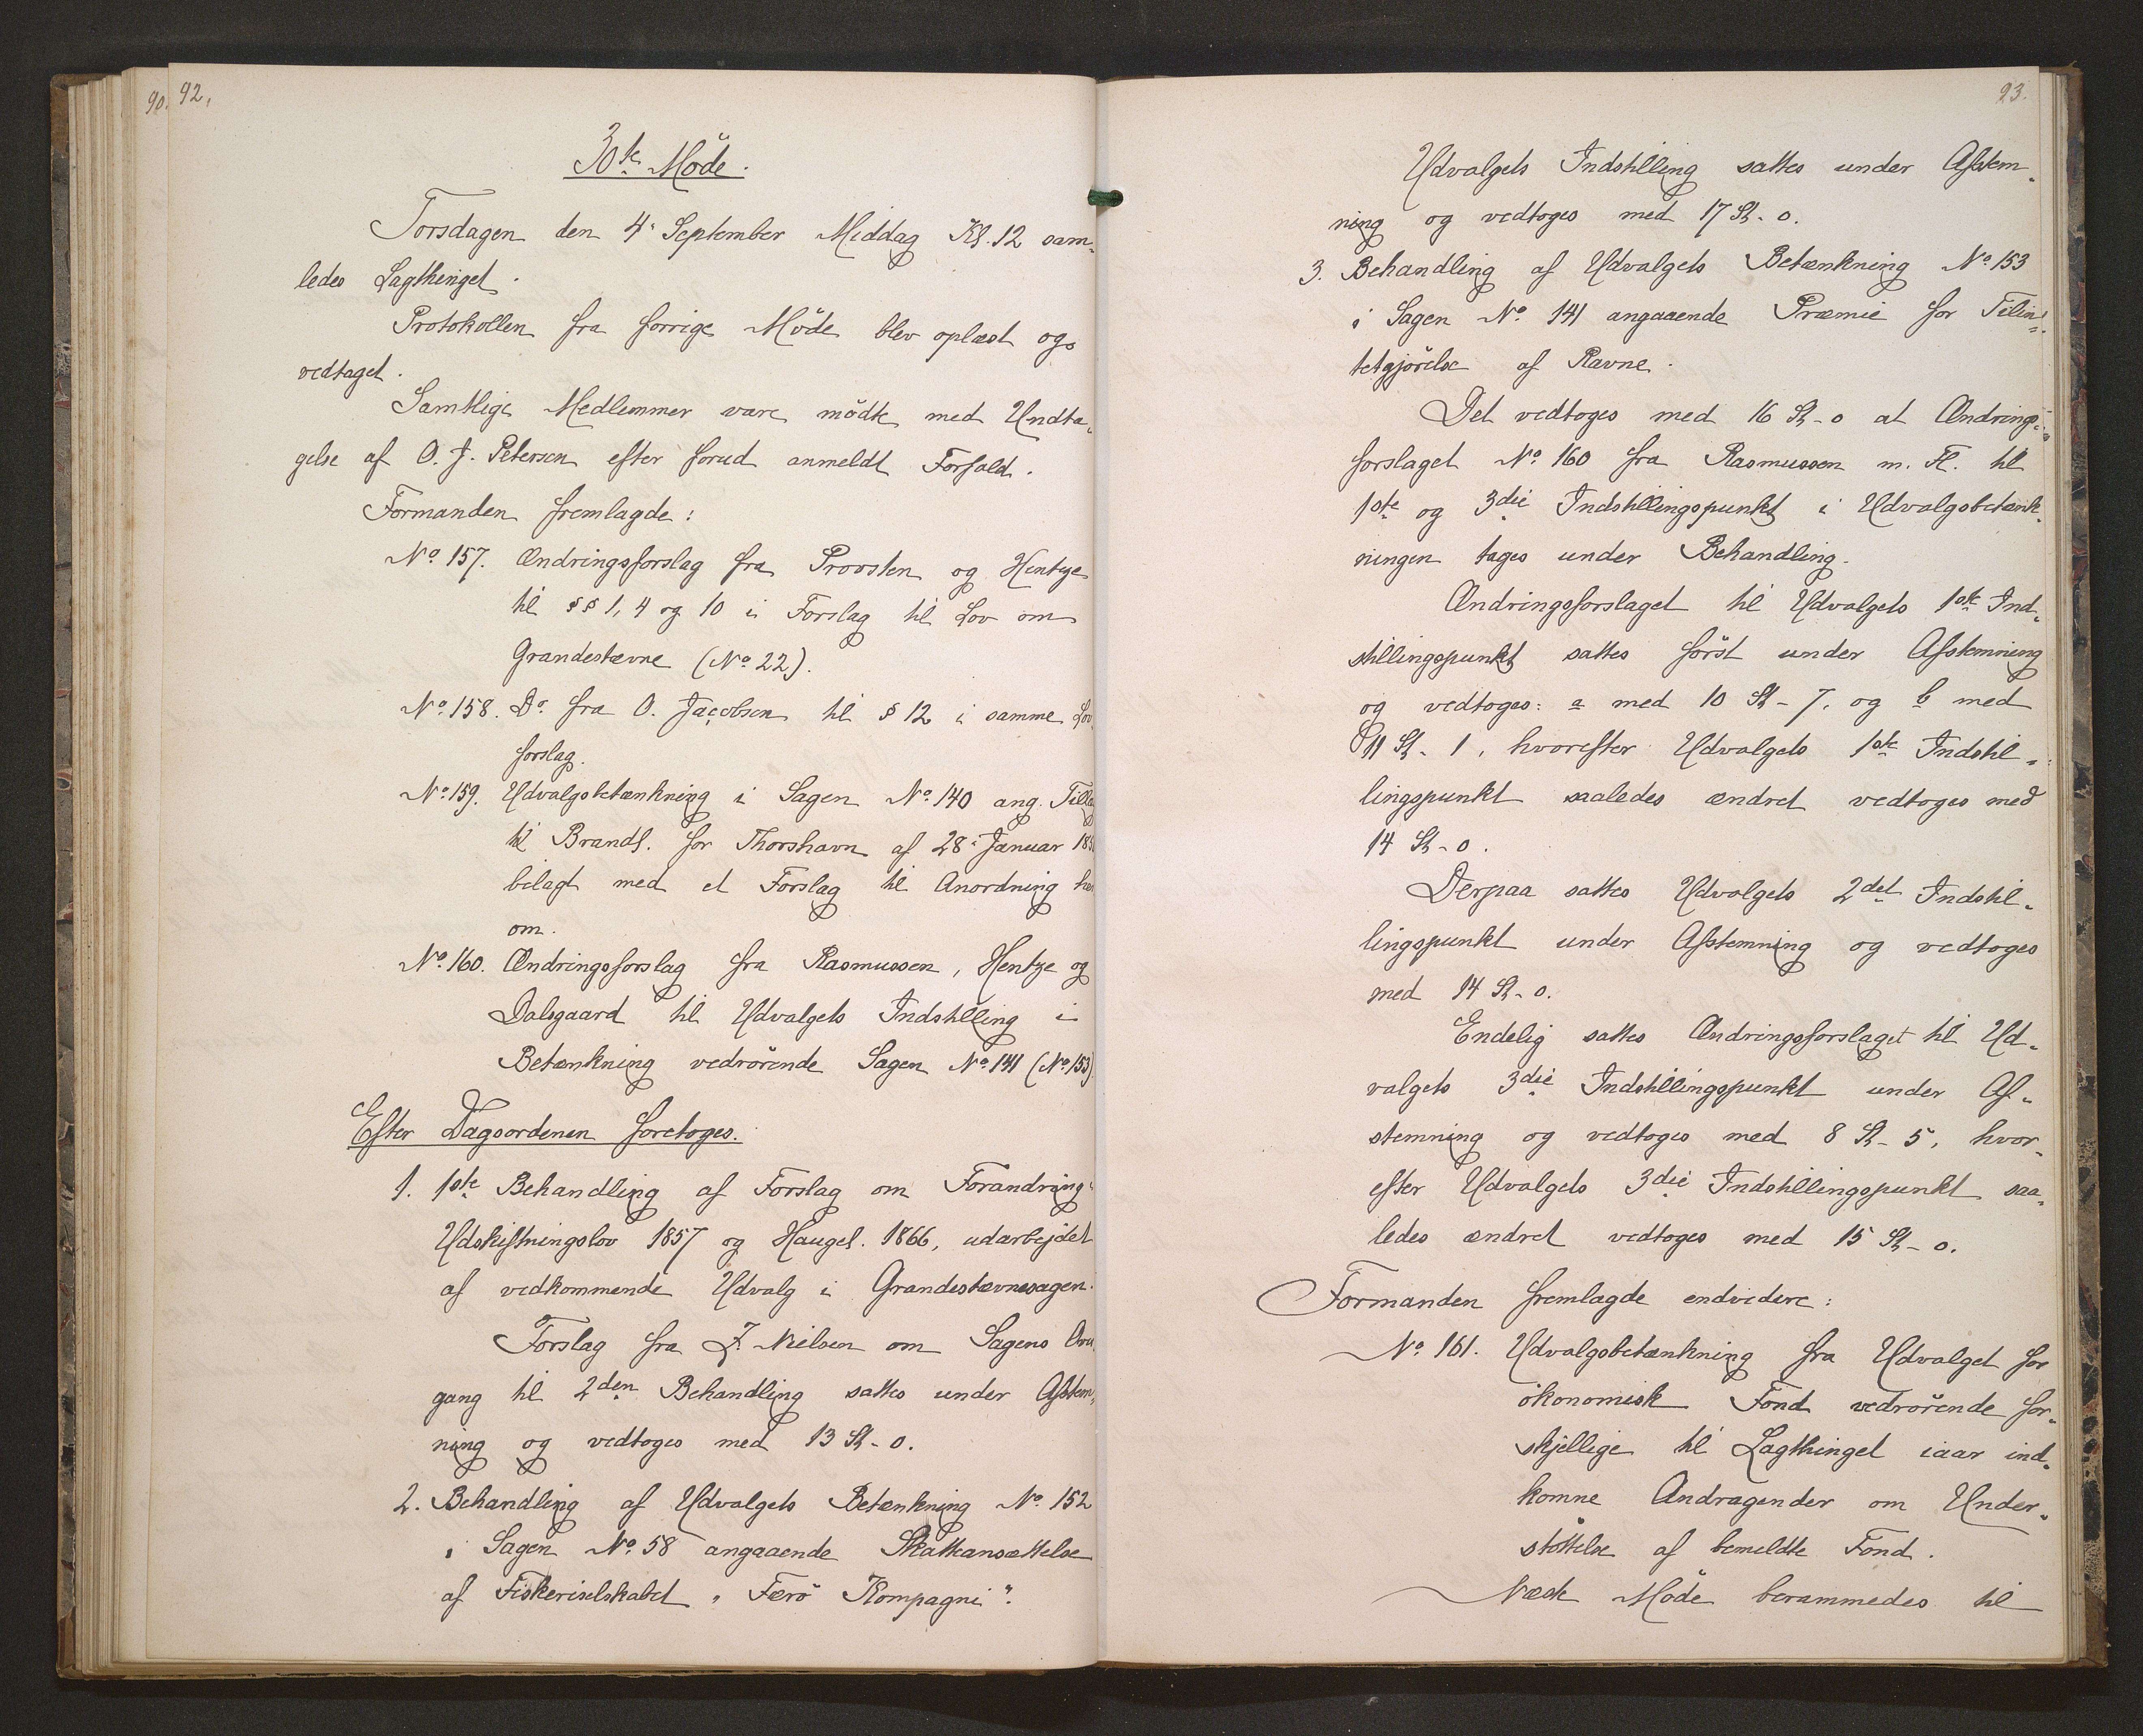 90. 92.
30te Möde.
Torsdagen den 4' September Middag Kl. 12 sam-
ledes Lagthinget.
Protokollen fra forrige Möde blev oplæst og
vedtaget.
Samtlige Medlemmer vare mödte med Undta-
gelse af O. J. Petersen efter forud anmeldt Forfald.
Formanden fremlagde:
No 157. Ændringsforslag fra Provsten og Hentze
til §§ 1, 4 og 10 i Forslag til Lov om
Grandestævne (No 22).
No 158. Do fra O. Jacobsen til § 12 i samme Lov
forslag.
No 159. Udvalgsbetænkning i Sagen No 140 ang.
til Brandf. for Thorshavn af 28' Januar
bilagt med et Forslag til Anordning her
om.
No 160. Ændringsforslag fra Rasmussen, Hentze og
Dalsgaard til Udvalgets Indstilling i
Betænkning vedrörende Sagen No 141 (No 153).
Efter Dagsordenen foretoges.
1. 1ste Behandling af Forslag om Forandring i
Udskiftningslov 1857 og Haugel. 1866, udarbejdet
af vedkommende Udvalg i Grandestævnesagen.
Forslag fra J. Nielsen om Sagens Over
gang til 2den Behandling sattes under Afstem-
ning og vedtoges med 13 St - 0.
2. Behandling af Udvalgets Betænkning No 152
i Sagen No 58 angaaende Skatteansættelse
af Fiskeriselskabet „Færö Kompagni".
93.
Udvalgets Indstilling sattes under Afstem-
ning og vedtoges med 17 St - 0.
3. Behandling af Udvalgets Betænkning No 153
i Sagen No 141 angaaende Præmie for Tilin-
tetgjörelse af Ravne.
Det vedtoges med 16 St - 0 at Ændrings-
forslaget No 160 fra Rasmussen m. Fl. til
1ste og 3die Indstillingspunkt i Udvalgsbetænk-
ningen tages under Behandling.
Ændringsforslaget til Udvalgets 1ste Ind-
stillingspunkt sattes först under Afstemning
og vedtoges: a med 10 St - 7, og b med
11 St - 1, hvorefter Udvalgets 1ste Indstil-
lingspunkt saaledes ændret vedtoges med
14 St - 0.
Derpaa sattes Udvalgets 2det Indstil-
lingspunkt under Afstemning og vedtoges
med 14 St - 0.
Endelig sattes Ændringsforslaget til Ud-
valgets 3die Indstillingspunkt under Af-
stemning og vedtoges med 8 St - 5, hvor-
efter Udvalgets 3die Indstillingspunkt saa-
ledes ændret vedtoges med 15 St - 0.
Formanden fremlagde endvidere:
No 161. Udvalgsbetænkning fra Udvalget for
ökonomisk Fond vedrörende for-
skjellige til Lagthinget iaar ind-
komne Andragender om Under-
stöttelse af bemeldte Fond.
Næste Möde berammedes til